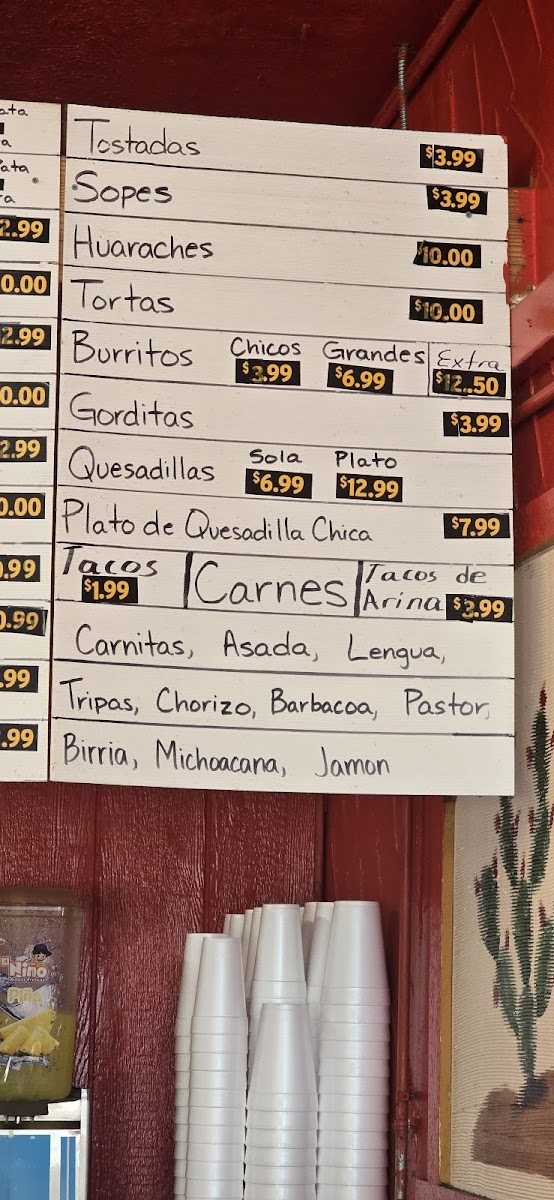 Tostadas $3.99
Sopes $3.99
Huaraches $10.00
Tortas $10.00
Burritos Chicos $3.99 Grandes $6.99 Extra $12..50
Gorditas $3.99
Quesadillas Sola $6.99 Plato $12.99
Plato de Quesadilla Chica $7.99
Tacos $1.99 Carnes Tacos de Arina $3.99
Carnitas, Asada, Lengua,
Tripas, Chorizo, Barbacoa, Pastor,
Birria, Michoacana, Jamon
2.99
0.00
2.99
0.00
2.99
0.00
.99
0.99
.99
.99
Niño
Piña